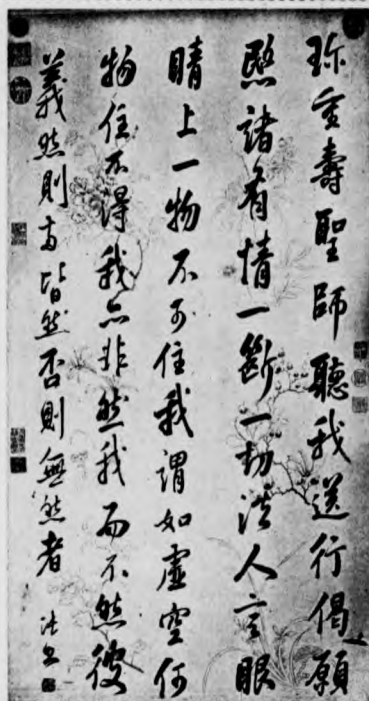 珍重壽聖師聽我送行偈願
愍諸有情一斷一切法人言眼
睛上一物不可住我謂如虛空何
物住不得我亦非然我而不然彼
義然則兩皆然否則無然者